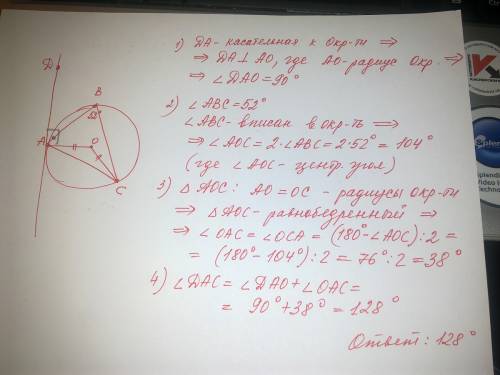 1) DA - касательная к окр-ти ⇒
⇒ DA ⊥ AO, где AO - радиус окр. ⇒
⇒ ∠DAO = 90°
2) ∠ABC = 52°
∠ABC - вписан в окр-ть ⇒
⇒ ∠AOC = 2·∠ABC = 2·52° = 104°
(где ∠AOC - центр. угол)
3) △AOC: AO = OC - радиусы окр-ти
⇒ △AOC - равнобедренный ⇒
⇒ ∠OAC = ∠OCA = (180° - ∠AOC) : 2 =
= (180° - 104°) : 2 = 76° : 2 = 38°
4) ∠DAC = ∠DAO + ∠OAC =
= 90° + 38° = 128°
Ответ: 128°
D
B
52°
A
O
C
Splendid
Video In